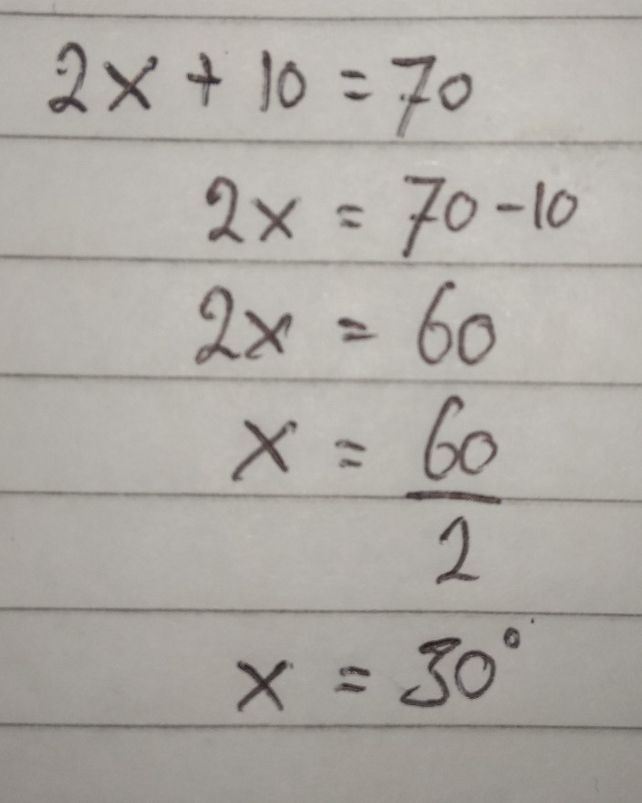 2x + 10 = 70
2x = 70 - 10
2x = 60
x = 60
2
x = 30°